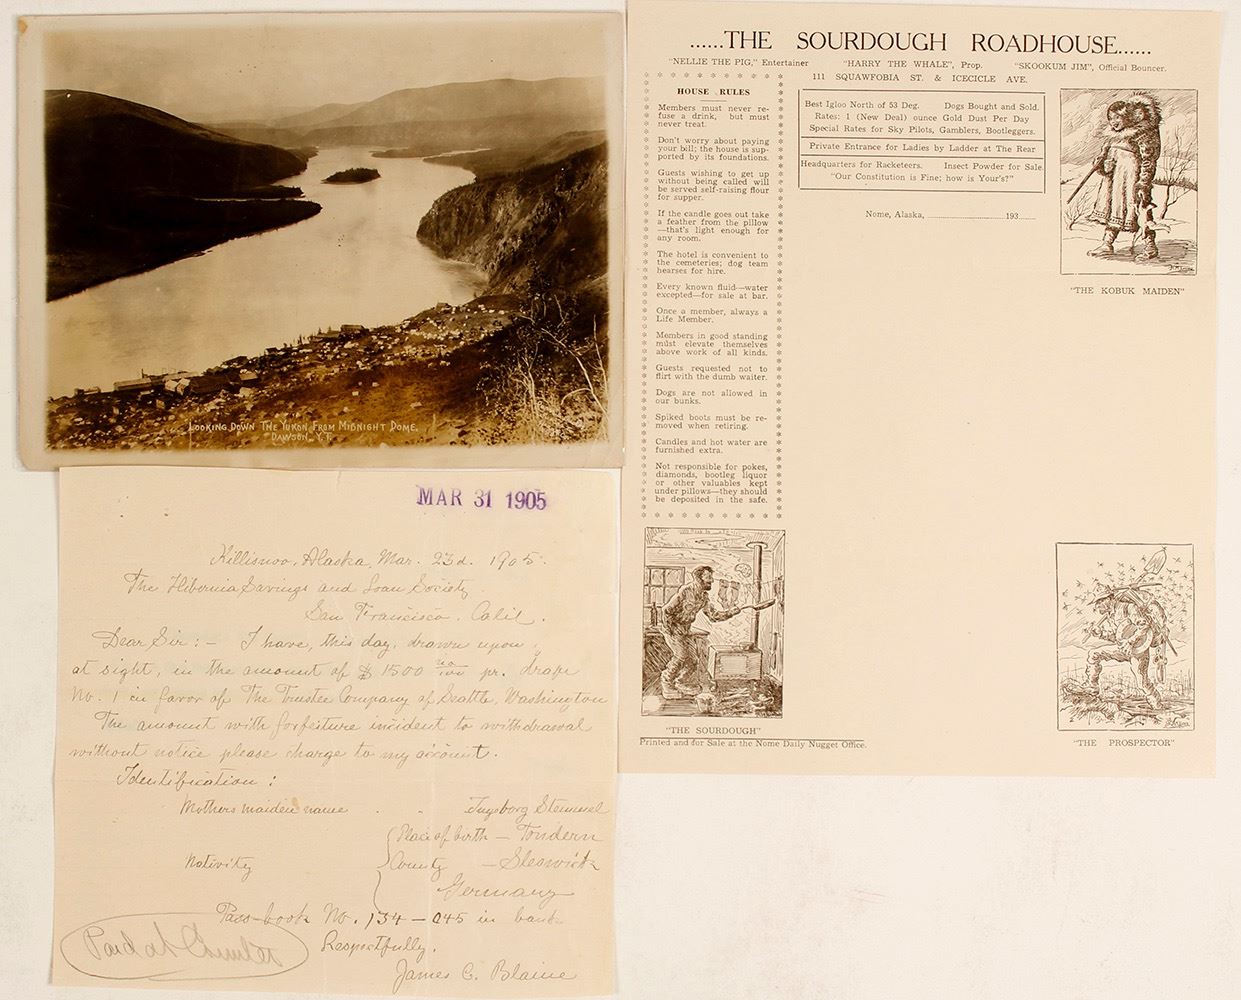 LOOKING DOWN THE YUKON FROM MIDNIGHT DOME.
DAWSON, Y.T.
......THE SOURDOUGH ROADHOUSE......
"NELLIE THE PIG," Entertainer "HARRY THE WHALE", Prop. "SKOOKUM JIM", Official Bouncer.
111 SQUAWFOBIA ST. & ICECICLE AVE.
HOUSE RULES
Members must never re-
fuse a drink, but must
never treat.
Don't worry about paying
your bill; the house is sup-
ported by its foundations.
Guests wishing to get up
without being called will
be served self-raising flour
for supper.
If the candle goes out take
a feather from the pillow
—that's light enough for
any room.
The hotel is convenient to
the cemeteries; dog team
hearses for hire.
Every known fluid—water
excepted—for sale at bar.
Once a member, always a
Life Member.
Members in good standing
must elevate themselves
above work of all kinds.
Guests requested not to
flirt with the dumb waiter.
Dogs are not allowed in
our bunks.
Spiked boots must be re-
moved when retiring.
Candles and hot water are
furnished extra.
Not responsible for pokes,
diamonds, bootleg liquor
or other valuables kept
under pillows—they should
be deposited in the safe.
Best Igloo North of 53 Deg. Dogs Bought and Sold.
Rates: 1 (New Deal) ounce Gold Dust Per Day
Special Rates for Sky Pilots, Gamblers, Bootleggers.
Private Entrance for Ladies by Ladder at The Rear
Headquarters for Racketeers. Insect Powder for Sale
"Our Constitution is Fine; how is Your's?"
Nome, Alaska, 193
"THE KOBUK MAIDEN"
"THE SOURDOUGH"
"THE PROSPECTOR"
Printed and for Sale at the Nome Daily Nugget Office.
MAR 31 1905
Killisnoo, Alaska, Mar. 23d. 1905.
The Hibernia Savings and Loan Society
San Francisco, Calif.
Dear Sir:- I have, this day, drawn upon
at sight, in the amount of $1500 no/100 pr. draft
No. 1 in favor of The Trustee Company of Seattle, Washington
The amount with forfeiture incident to withdrawal
without notice please charge to my account.
Identification:
Mothers maiden name
Nativity
Place of birth — Tondern
County — Sleswick
Germany
Pass-book No. 134-045 in bank
Respectfully,
James C. Blaine
Paid at